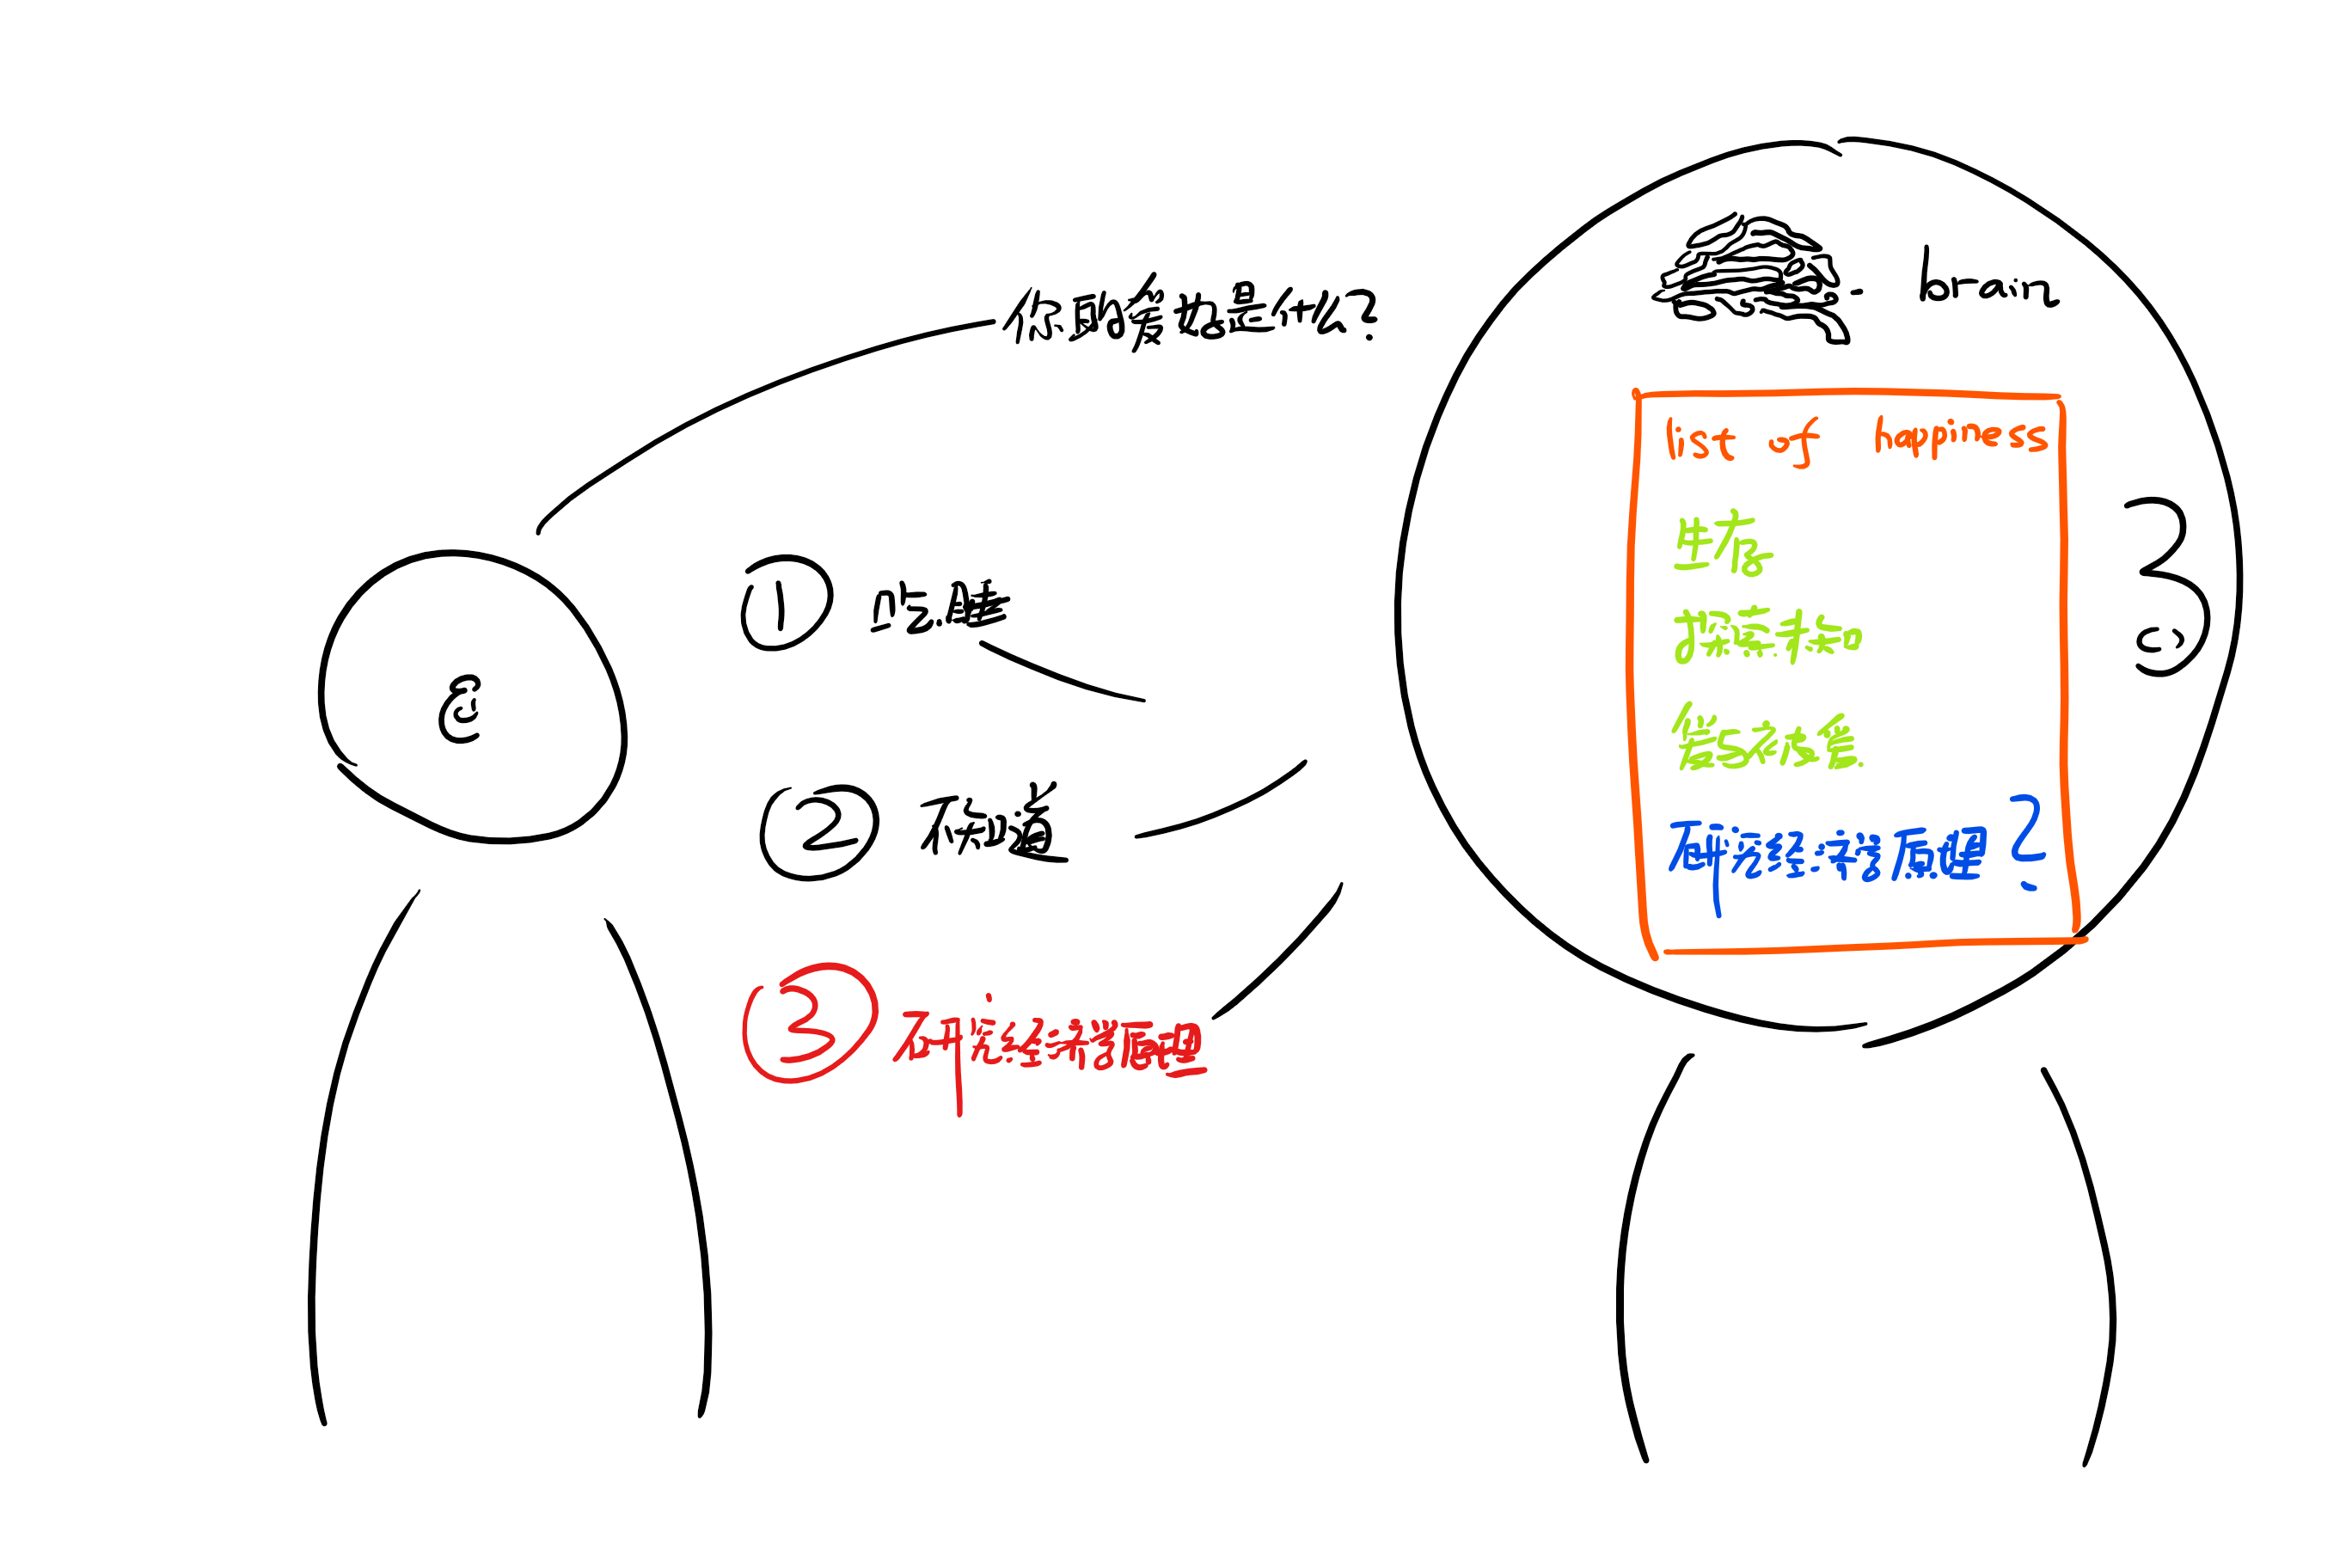 你的爱好是什么?
① 吃.睡
② 不知道
③ 研究经济问题
brain
list of happiness
生存
探索未知
繁衍后代
研究经济学原理?